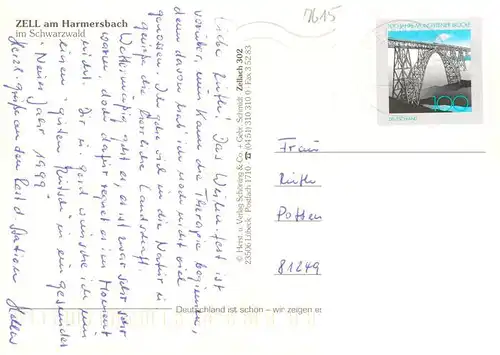 ZELL am Harmersbach
im Schwarzwald
7615
Liebe Ruth. Das Weihn.fest ist
vorüber, nun kann die Therapie beginnen,
denn davon hab' ich noch nicht viel
genossen. Ich gehe viel in die Natur u.
genieße die herrliche Landschaft.
Wettermäßig geht es, es ist zwar sehr
warm, doch dafür regnet es im Moment
nicht. Dir u. Gerd wünsche ich nun
einen guten Rutsch in ein gesundes
"Neues Jahr 1999"
Herzl. Grüße an den Rest d. Station
© Horst u. Verlag Schöning & Co. + Gebr. Schmidt
23506 Lübeck · Postfach 1710 · ☎ (04 51) 310 310 0 · Fax 3 52 83
Zellach 302
100 JAHRE MÜNGSTENER BRÜCKE
100
DEUTSCHLAND
Frau
81249
Deutschland ist schön – wir zeigen es